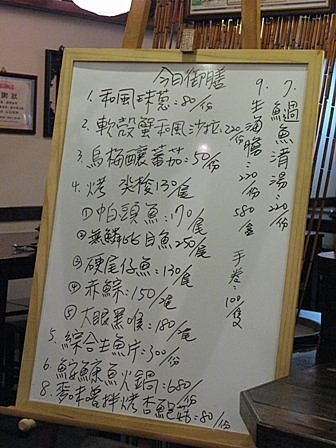 今日御膳
1. 和風味蔥:80/份
2. 軟殼蟹和風沙拉:220/份
3. 烏梅釀蕃茄:50/份
4. 烤 130/尾
①帕頭魚:170/尾
②無鱗比目魚250/尾
③硬尾仔魚:130/尾
④赤鯮:150/尾
⑤大眼黑喉:180/尾
5. 綜合生魚片:300/份
6. 魚火鍋:680/份
8. 烤杏鮑菇:80/份
7. 魚清湯:220/份
9. 生海膽:220/份 580/盒
手卷:100/隻